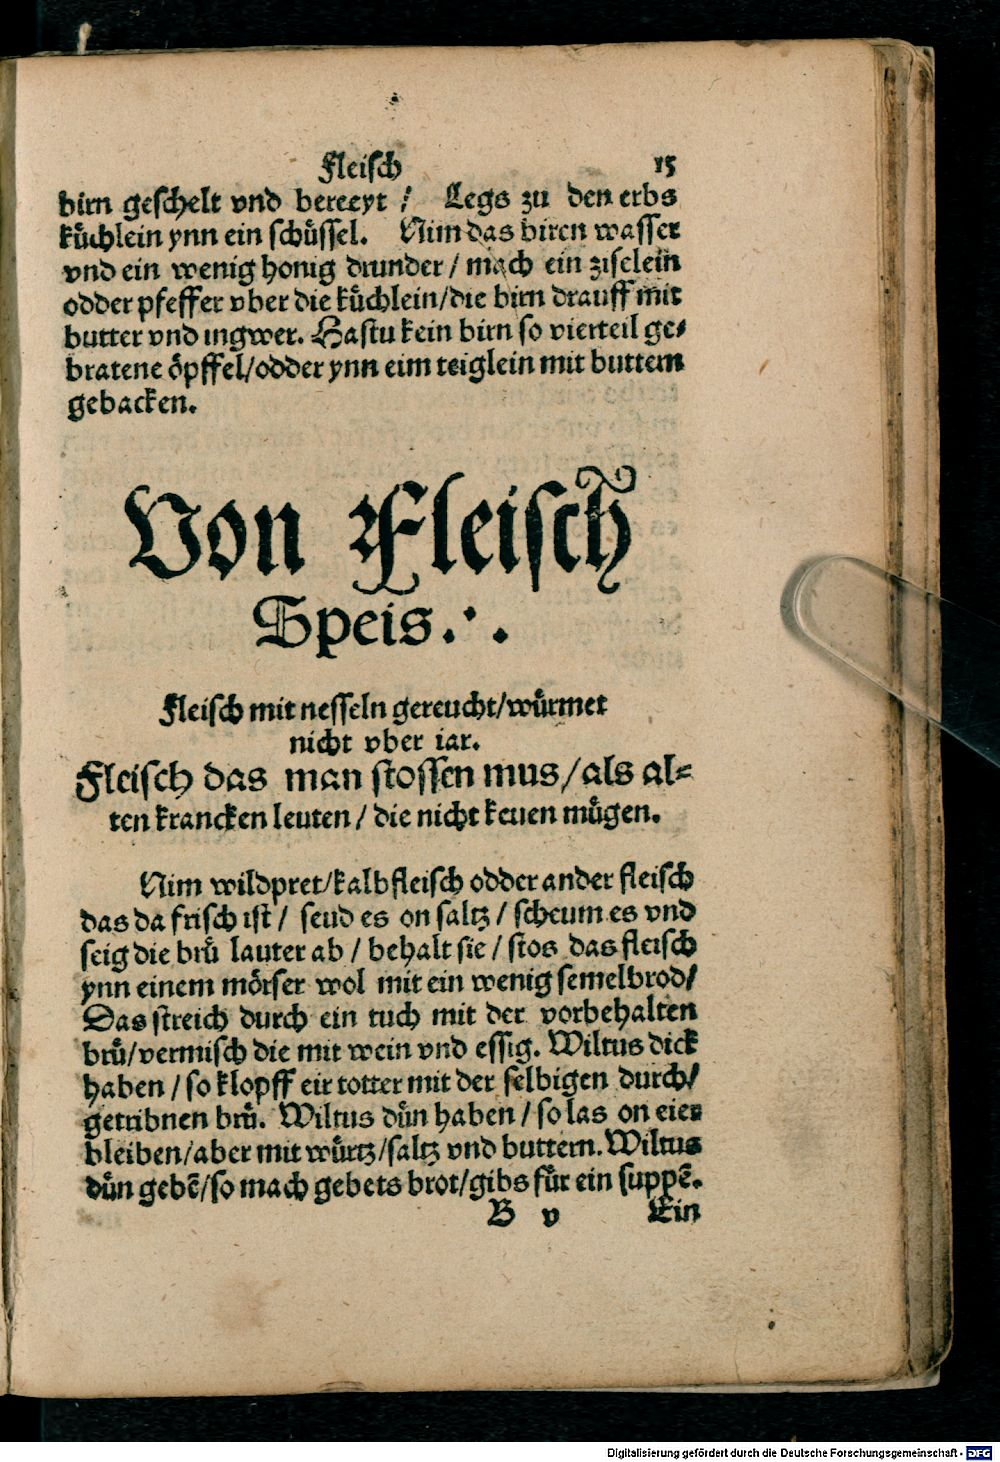 Fleisch 15
birn geschelt vnd bereeyt / Legs zu den erbs
kuͤchlein ynn ein schuͤssel. Nim das biren wasser
vnd ein wenig honig drunder / mach ein ziselein
odder pfeffer vber die kuͤchlein/die birn drauff mit
butter vnd ingwer. Hastu kein birn so vierteil ge⸗
bratene oͤpffel/odder ynn eim teiglein mit buttern
gebacken.
Von Fleisch
Speis.·.
Fleisch mit nesseln gereucht/wuͤrmet
nicht vber iar.
Fleisch das man stossen mus/als al⸗
ten krancken leuten / die nicht keuen muͤgen.
Nim wildpret/kalbfleisch odder ander fleisch
das da frisch ist / seud es on saltz / scheum es vnd
seig die bruͤ lauter ab / behalt sie / stos das fleisch
ynn einem moͤrser wol mit ein wenig semelbrod/
Das streich durch ein tuch mit der vorbehalten
bruͤ/vermisch die mit wein vnd essig. Wiltus dick
haben / so klopff eir totter mit der selbigen durch/
getribnen bruͤ. Wiltus duͤn haben / so las on eier
bleiben/aber mit wuͤrtz/saltz vnd buttern. Wiltus
duͤn gebē/so mach gebets brot/gibs fuͤr ein suppē.
B v Ein
Digitalisierung gefördert durch die Deutsche Forschungsgemeinschaft - DFG